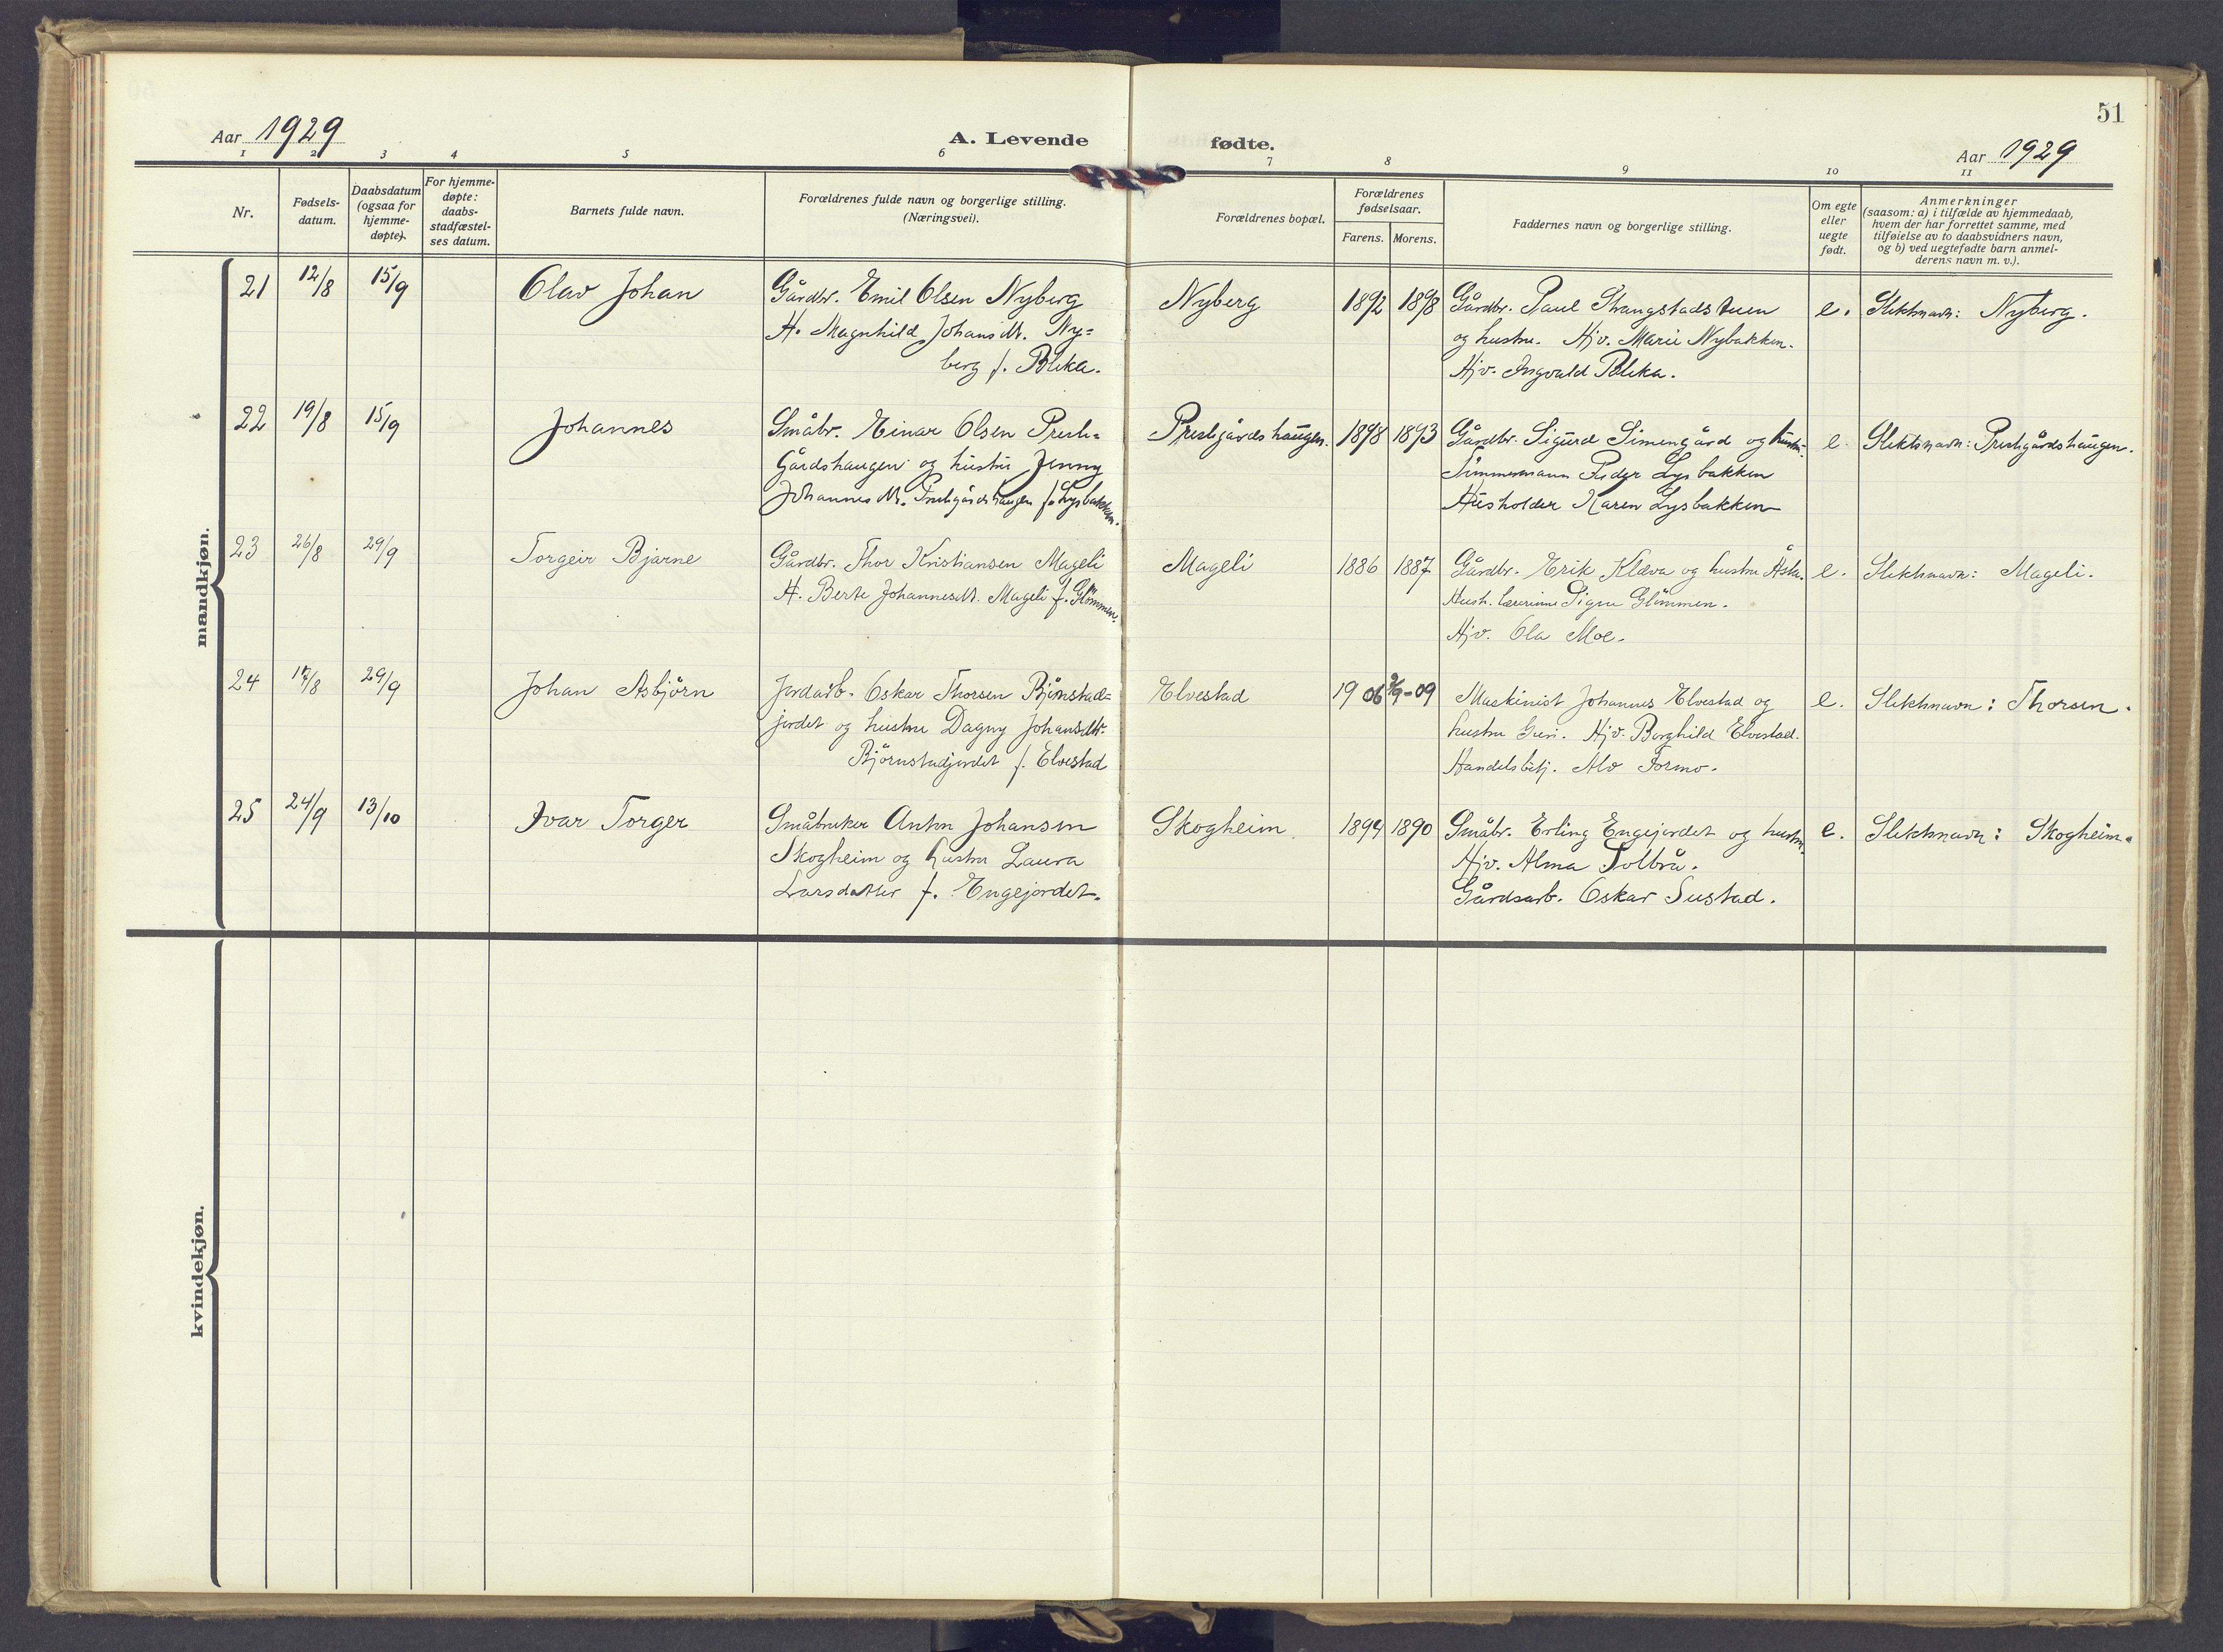 51
Aar 1929
A. Levende fødte.
Aar 1929
1 2 3 4 5 6 7 8 9 10 11
Nr.
Fødsels-
datum.
Daabsdatum
(ogsaa for
hjemme-
døpte).
For hjemme-
døpte:
daabs-
stadfæstel-
ses datum.
Barnets fulde navn.
Forældrenes fulde navn og borgerlige stilling.
(Næringsvei).
Forældrenes bopæl.
Forældrenes
fødselsaar.
Farens. Morens.
Faddernes navn og borgerlige stilling.
Om egte
eller
uegte
født.
Anmerkninger
(saasom: a) i tilfælde av hjemmedaab,
hvem der har forrettet samme, med
tilføielse av to daabsvidners navn,
og b) ved uegtefødte barn anmel-
derens navn m. v.).
mandkjøn.
21 12/8 15/9 Olav Johan
Gårdbr. Emil Olsen Nyberg
H. Magnhild Johansdtr. Ny=
berg f. Bleka.
Nyberg 1892 1898
Gårdbr. Paul Strangstadstuen
og hustru. Hjv. Marie Nybakken.
Hjv. Ingvald Bleka.
e. Slektsnavn: Nyberg.
22 19/8 15/9 Johannes
Småbr. Einar Olsen Prest=
gårdshaugen og hustru Jenny
Johannesdtr. Prestgårdshaugen f. Lysbakken.
Prestgårdshaugen. 1898 1893
Gårdbr. Sigurd Simengård og hustru.
Tømmermann Peder Lysbakken
Husholder Karen Lysbakken
e. Slektsnavn: Prestgårdshaugen.
23 26/8 29/9 Torgeir Bjarne
Gårdbr. Thor Kristiansen Mageli
H. Berte Johannesdtr. Mageli f. Glømmen.
Mageli 1886 1887
Gårdbr. Erik Klæva og hustru Åsta.
Hush. lærerinne Signe Glømmen.
Hjv. Ola Moe.
e. Slektsnavn: Mageli.
24 17/8 29/9 Johan Asbjørn
Jordarb. Oskar Thorsen Bjørnstad=
jordet og hustru Dagny Johansdtr.
Bjørnstadjordet f. Elvestad
Elvestad 1906 2/9-09
Maskinist Johannes Elvestad og
hustru Guri. Hjv. Borghild Elvestad.
Handelsbetj. Alv Formo.
e. Slektsnavn: Thorsen.
25 24/9 13/10 Ivar Torger
Småbruker Anton Johansen
Skogheim og hustru Laura
Larsdatter f. Engejordet.
Skogheim. 1894 1890
Småbr. Erling Engejordet og hustru.
Hjv. Alma Solbrå.
Gårdsarb. Oskar Sustad.
e. Slektsnavn: Skogheim.
kvindekjøn.